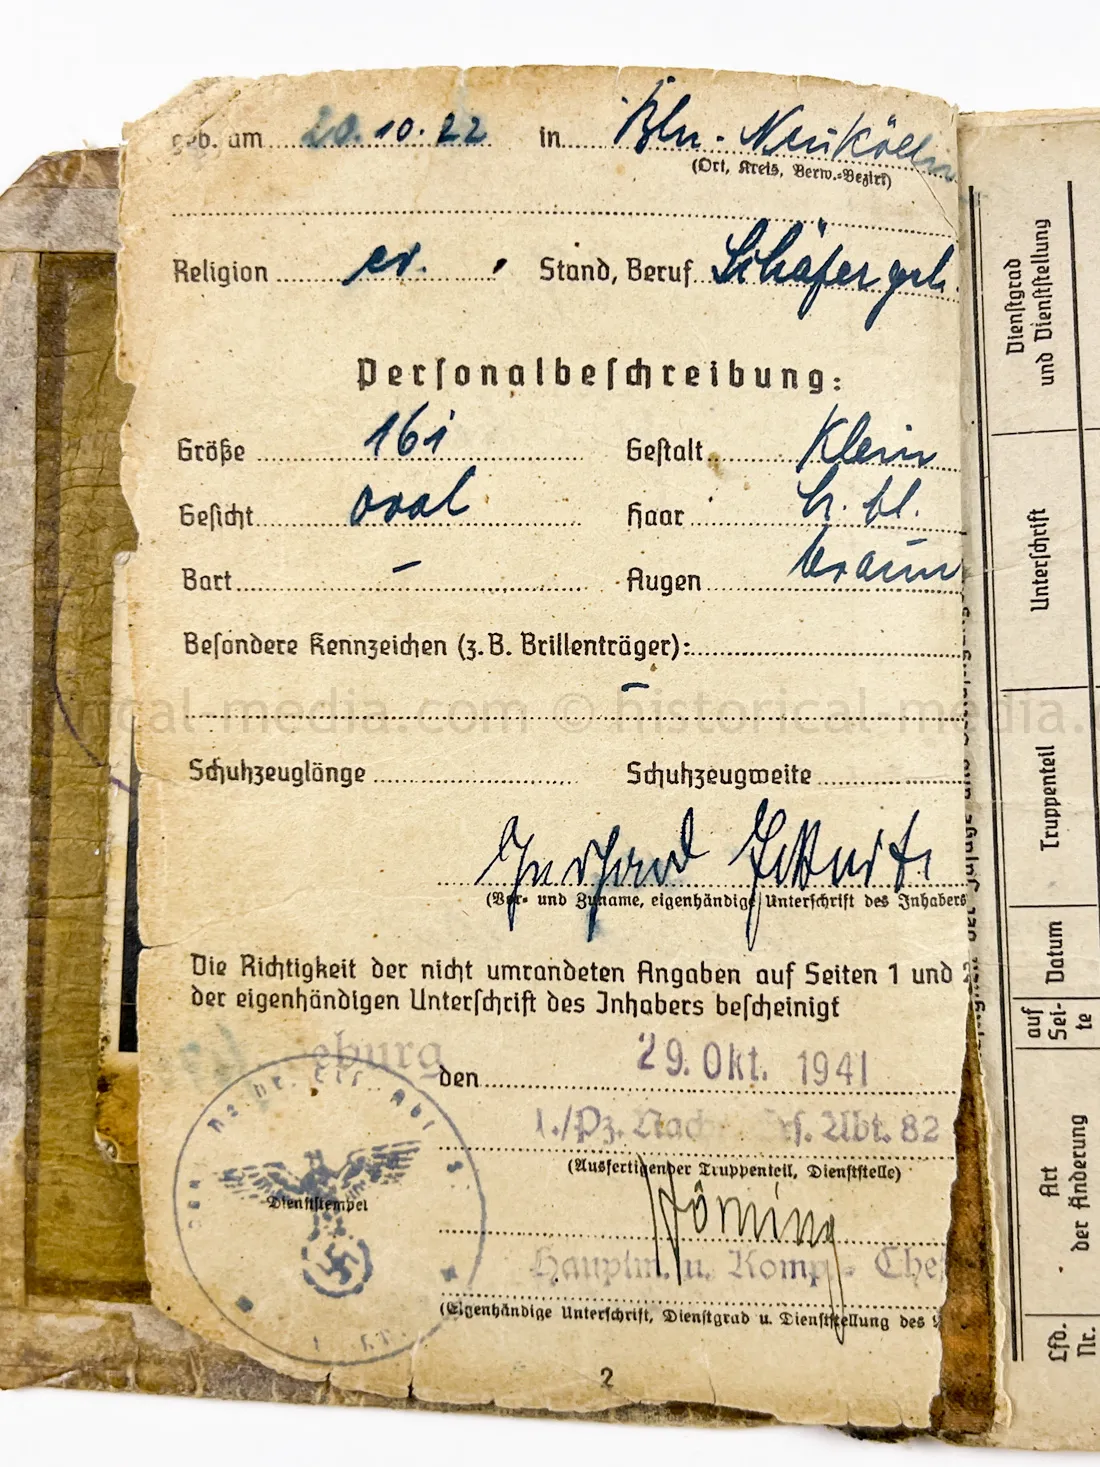 geb. am 20.10.22 in Bln.-Neukölln
(Ort, Kreis, Verw.-Bezirk)
Religion ev. Stand, Beruf Schäfergeh.
Personalbeschreibung:
Größe 161 Gestalt Klein
Gesicht oval Haar h. bl.
Bart – Augen braun
Besondere Kennzeichen (z. B. Brillenträger):
–
historical-media.com © historical-media.
Schuhzeuglänge Schuhzeugweite
Gerhard
(Vor- und Zuname, eigenhändige Unterschrift des Inhabers
Die Richtigkeit der nicht umrandeten Angaben auf Seiten 1 und 2
der eigenhändigen Unterschrift des Inhabers bescheinigt
eburg den 29. Okt. 1941
1./Pz. Nach Ers. Abt. 82
(Ausfertigender Truppenteil, Dienststelle)
Dienststempel
Hauptm. u. Komp.-Chef
(Eigenhändige Unterschrift, Dienstgrad u. Dienststellung des
2
Dienstgrad
und Dienststellung
Unterschrift
Truppenteil
Datum
auf
Sei-
te
Art
der Änderung
Lfd.
Nr.